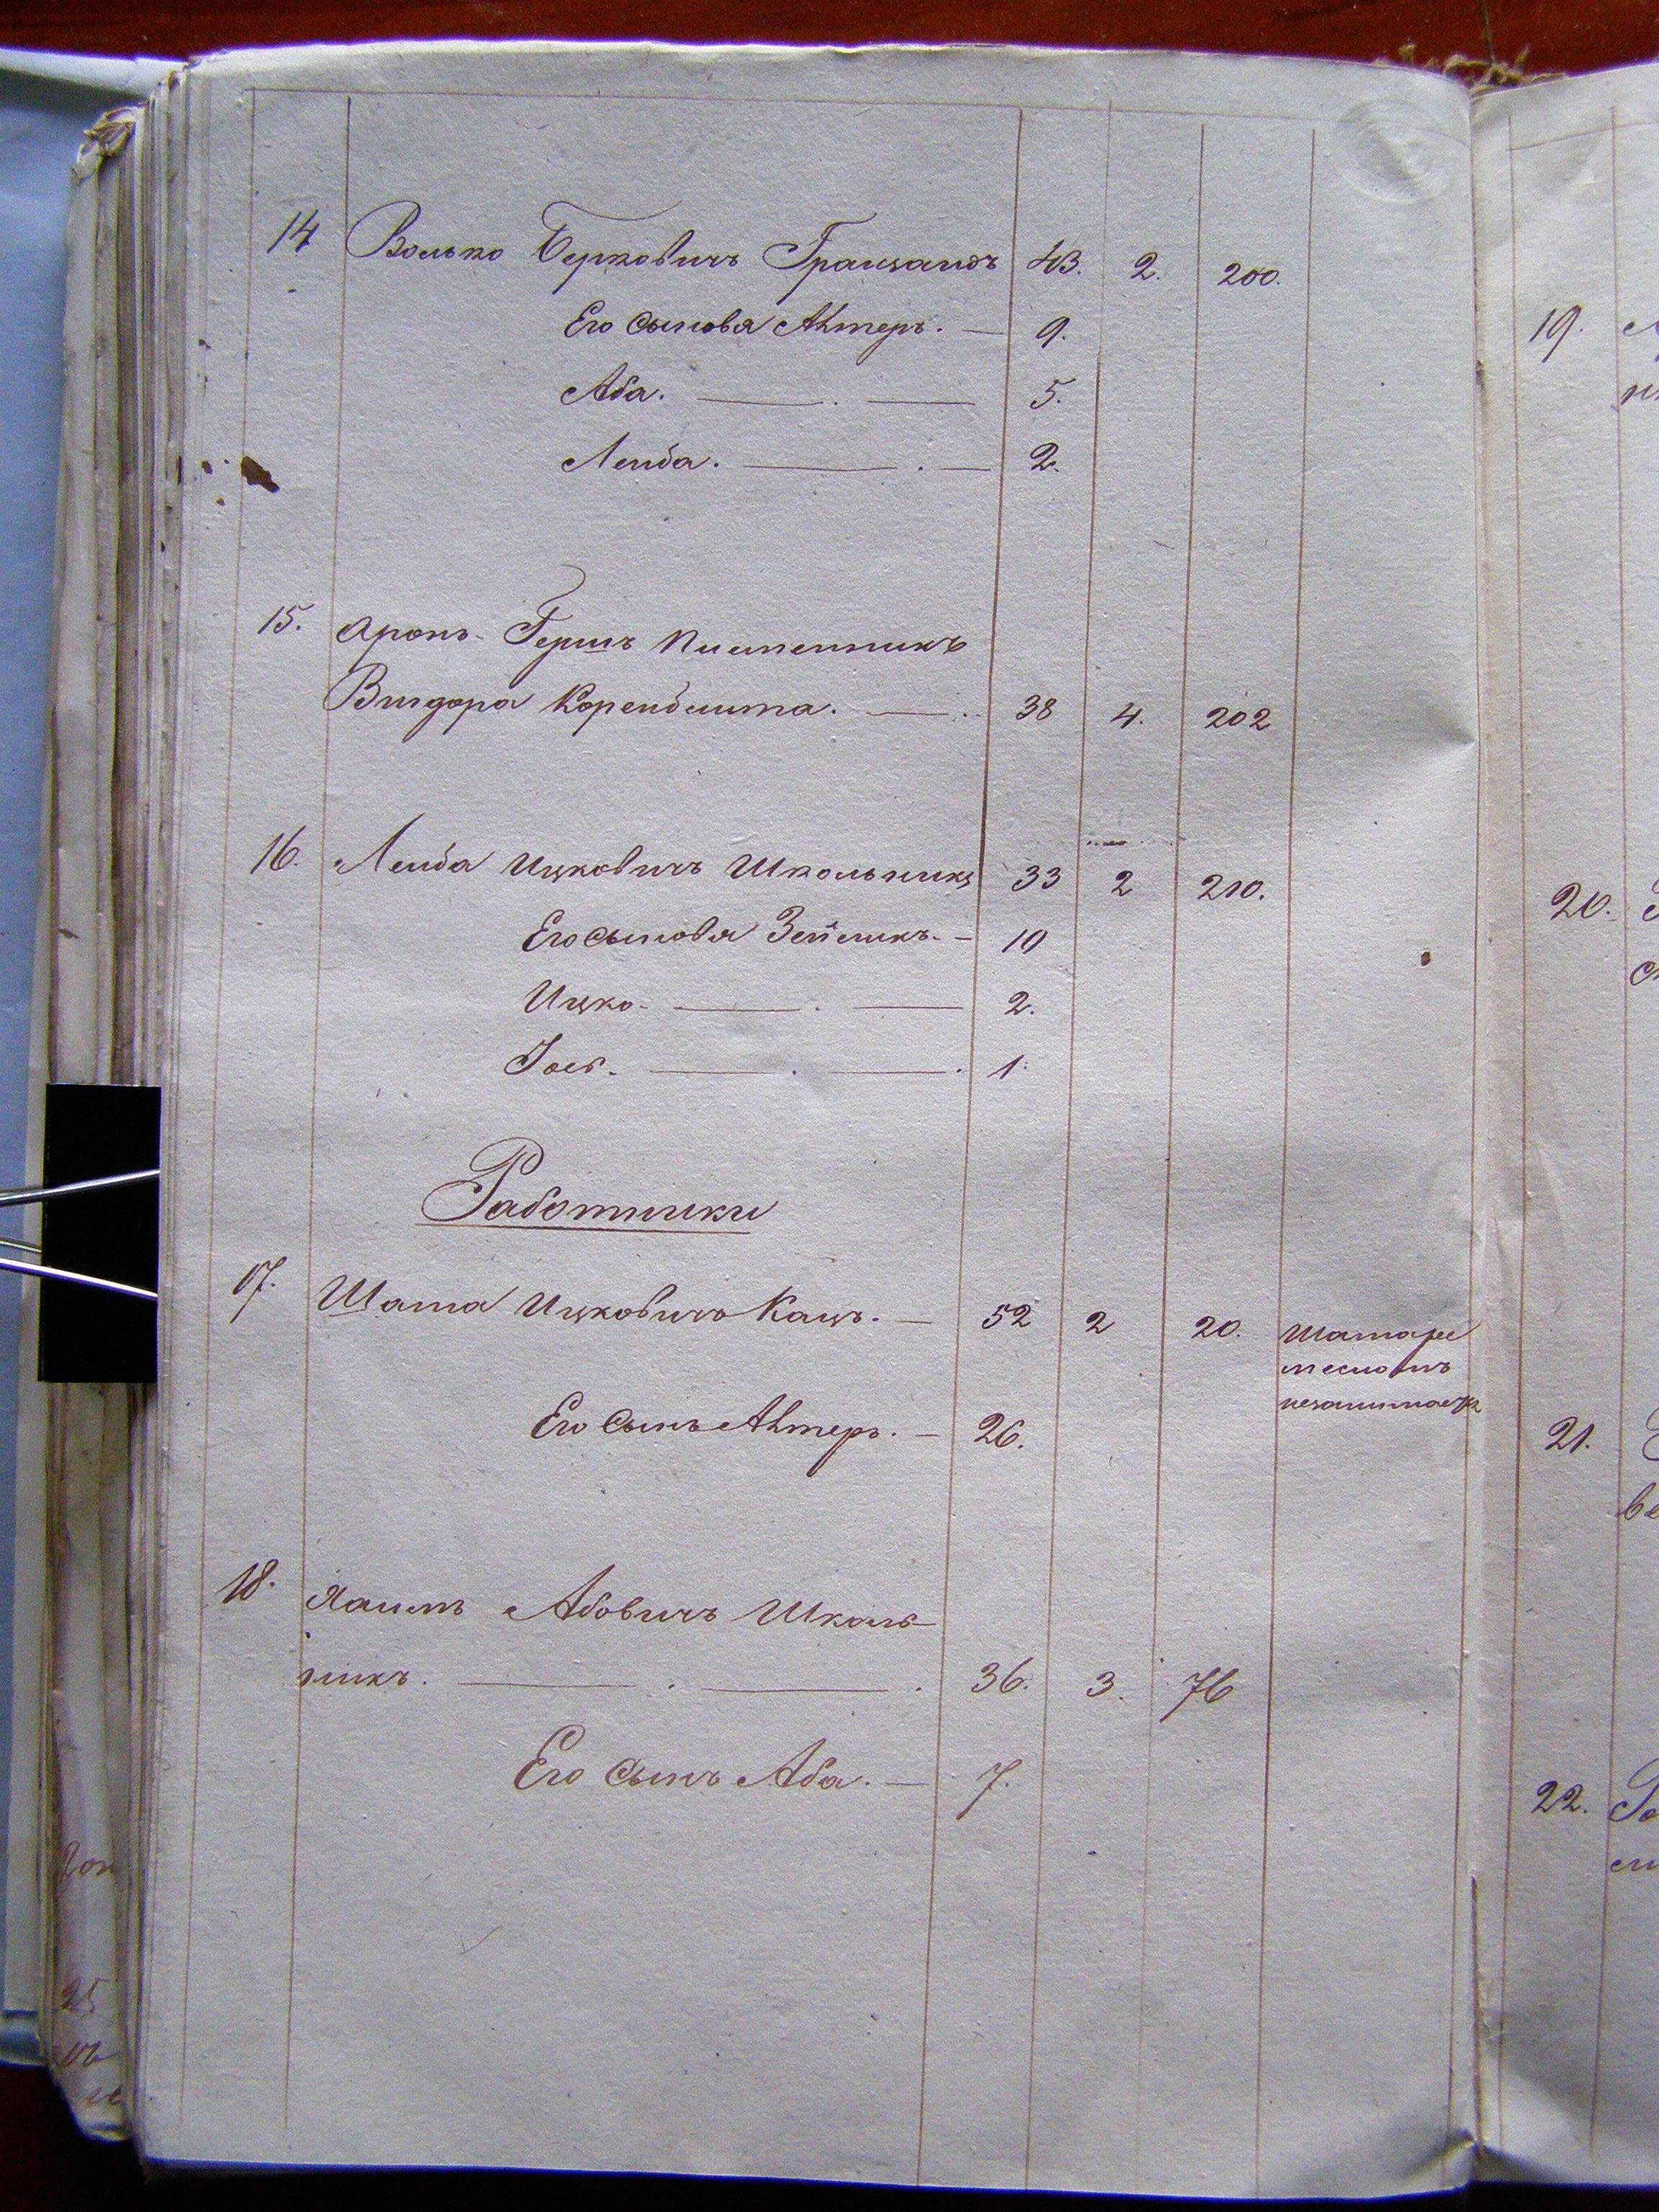 14 Волько Берковичъ Гранзандъ 43. 2. 200.
Его Сыновя Ахтеръ. — 9.
Аба. — . — 5.
Лейба. — . — 2.
15. Аронъ-Гершъ
Вигдора — .. 38 4. 202
16. Лейба Ицковичъ Школьникъ 33 2 210.
Его сыновя Зейликъ. — 10
Ицко. — . — 2.
Іось. — . — . 1.
Работники
17. Шама Ицковичъ Кацъ. — 52 2 20.
незанимается
Его Сынъ Ахтеръ. — 26.
18. Хаимъ Абовичъ Школь-
никъ. — . — . 36. 3. 76
Его Сынъ Аба. — 7.
19.
20.
21.
22.
25